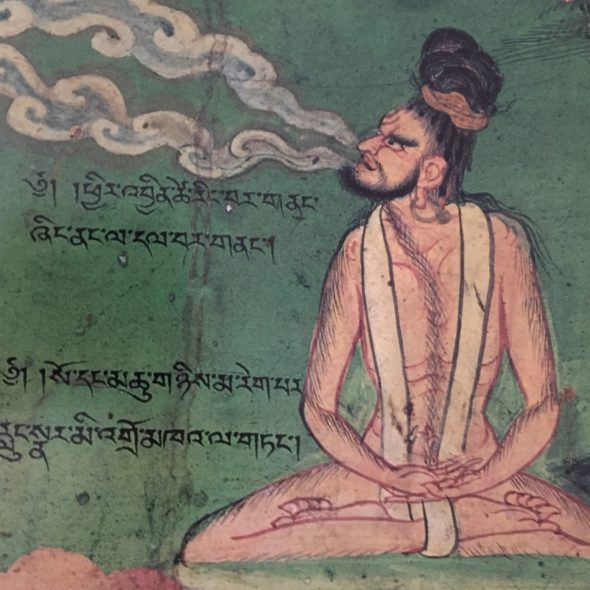 ༈། །ཕྱིར་འབྱིན་ཚེ་རིང་བར་གནང་
ཞིང་ནང་ལ་དལ་བར་གནང་།
༈། །སོ་དང་མཆུ་ག་ཉིས་མ་རེག་པར
རླུང་སྣར་མི་འགྲོ་མཁའ་ལ་གཏང་།